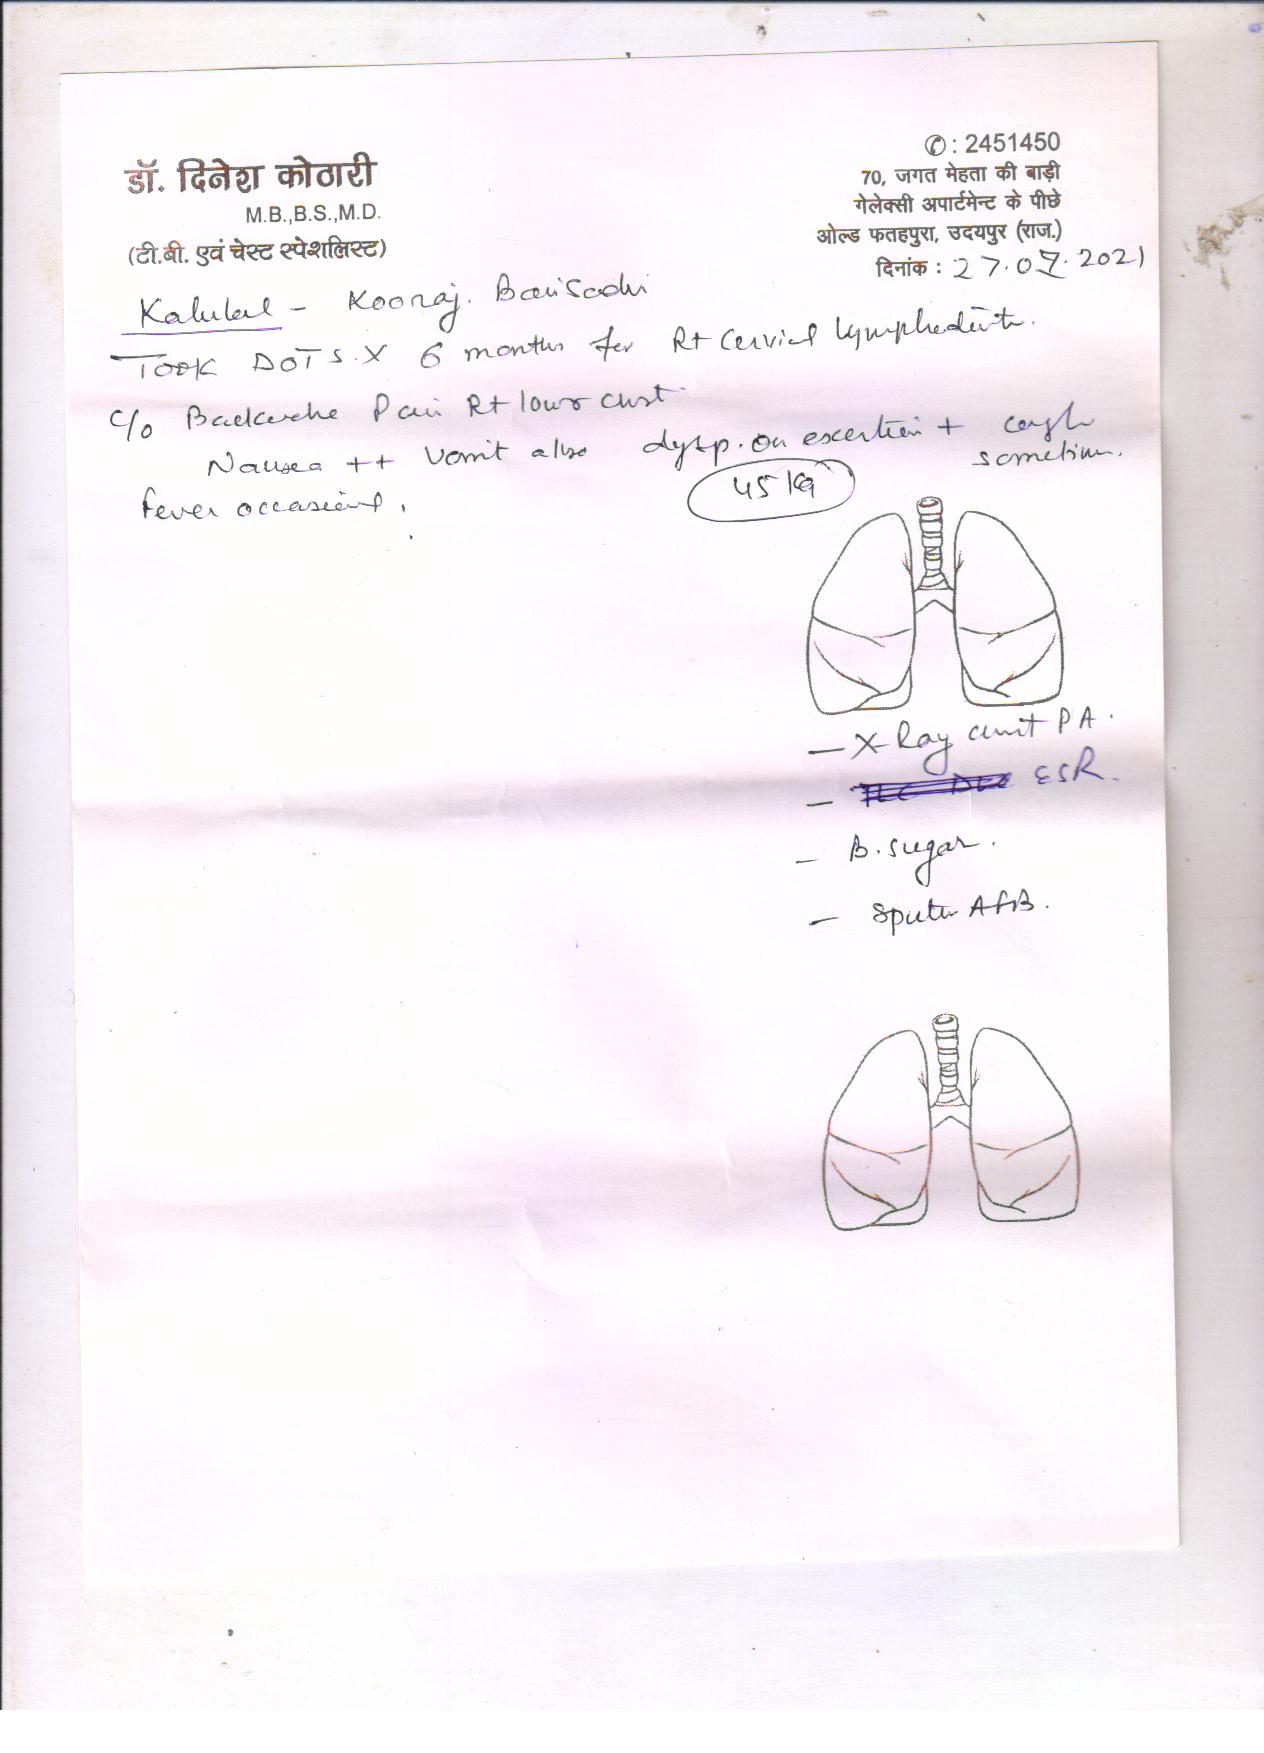 डॉ. दिनेश कोठारी
M.B.,B.S.,M.D.
(टी.बी. एवं चेस्ट स्पेशलिस्ट)
✆ : 2451450
70, जगत मेहता की बाड़ी
गेलेक्सी अपार्टमेन्ट के पीछे
ओल्ड फतहपुरा, उदयपुर (राज.)
दिनांक : 27.07.2021
Kalulal -
Took DOTS X 6 months for Rt Cervical lymphadenitis.
C/o Backache Pain Rt lower chest
Nausea ++ Vomit also dysp. on excertion + cough
sometimes.
fever occasional.
45 KG
- X-Ray chest PA.
- ESR.
- B. sugar.
- Sputum AFB.